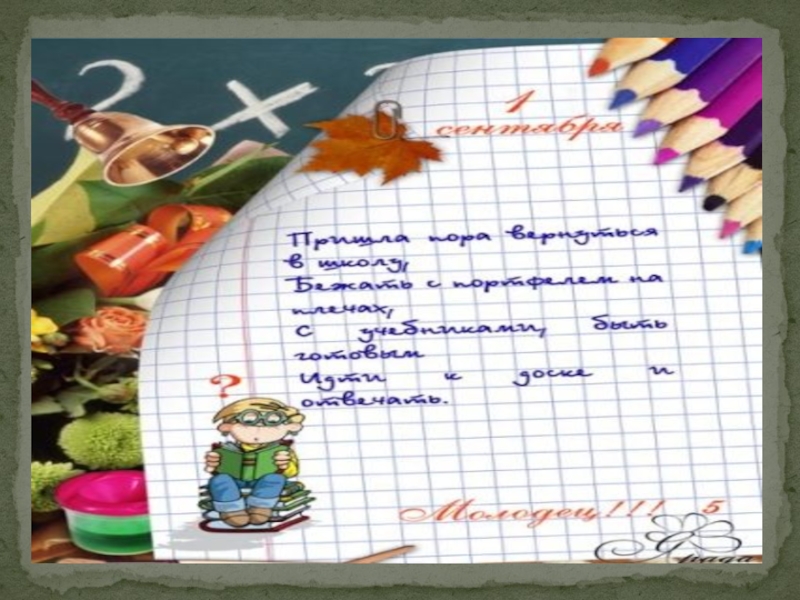 1
сентября
Пришла пора вернуться
в школу,
Бежать с портфелем на
плечах,
С учебниками, быть
готовым
Идти к доске и
отвечать.
?
Молодец!!! 5